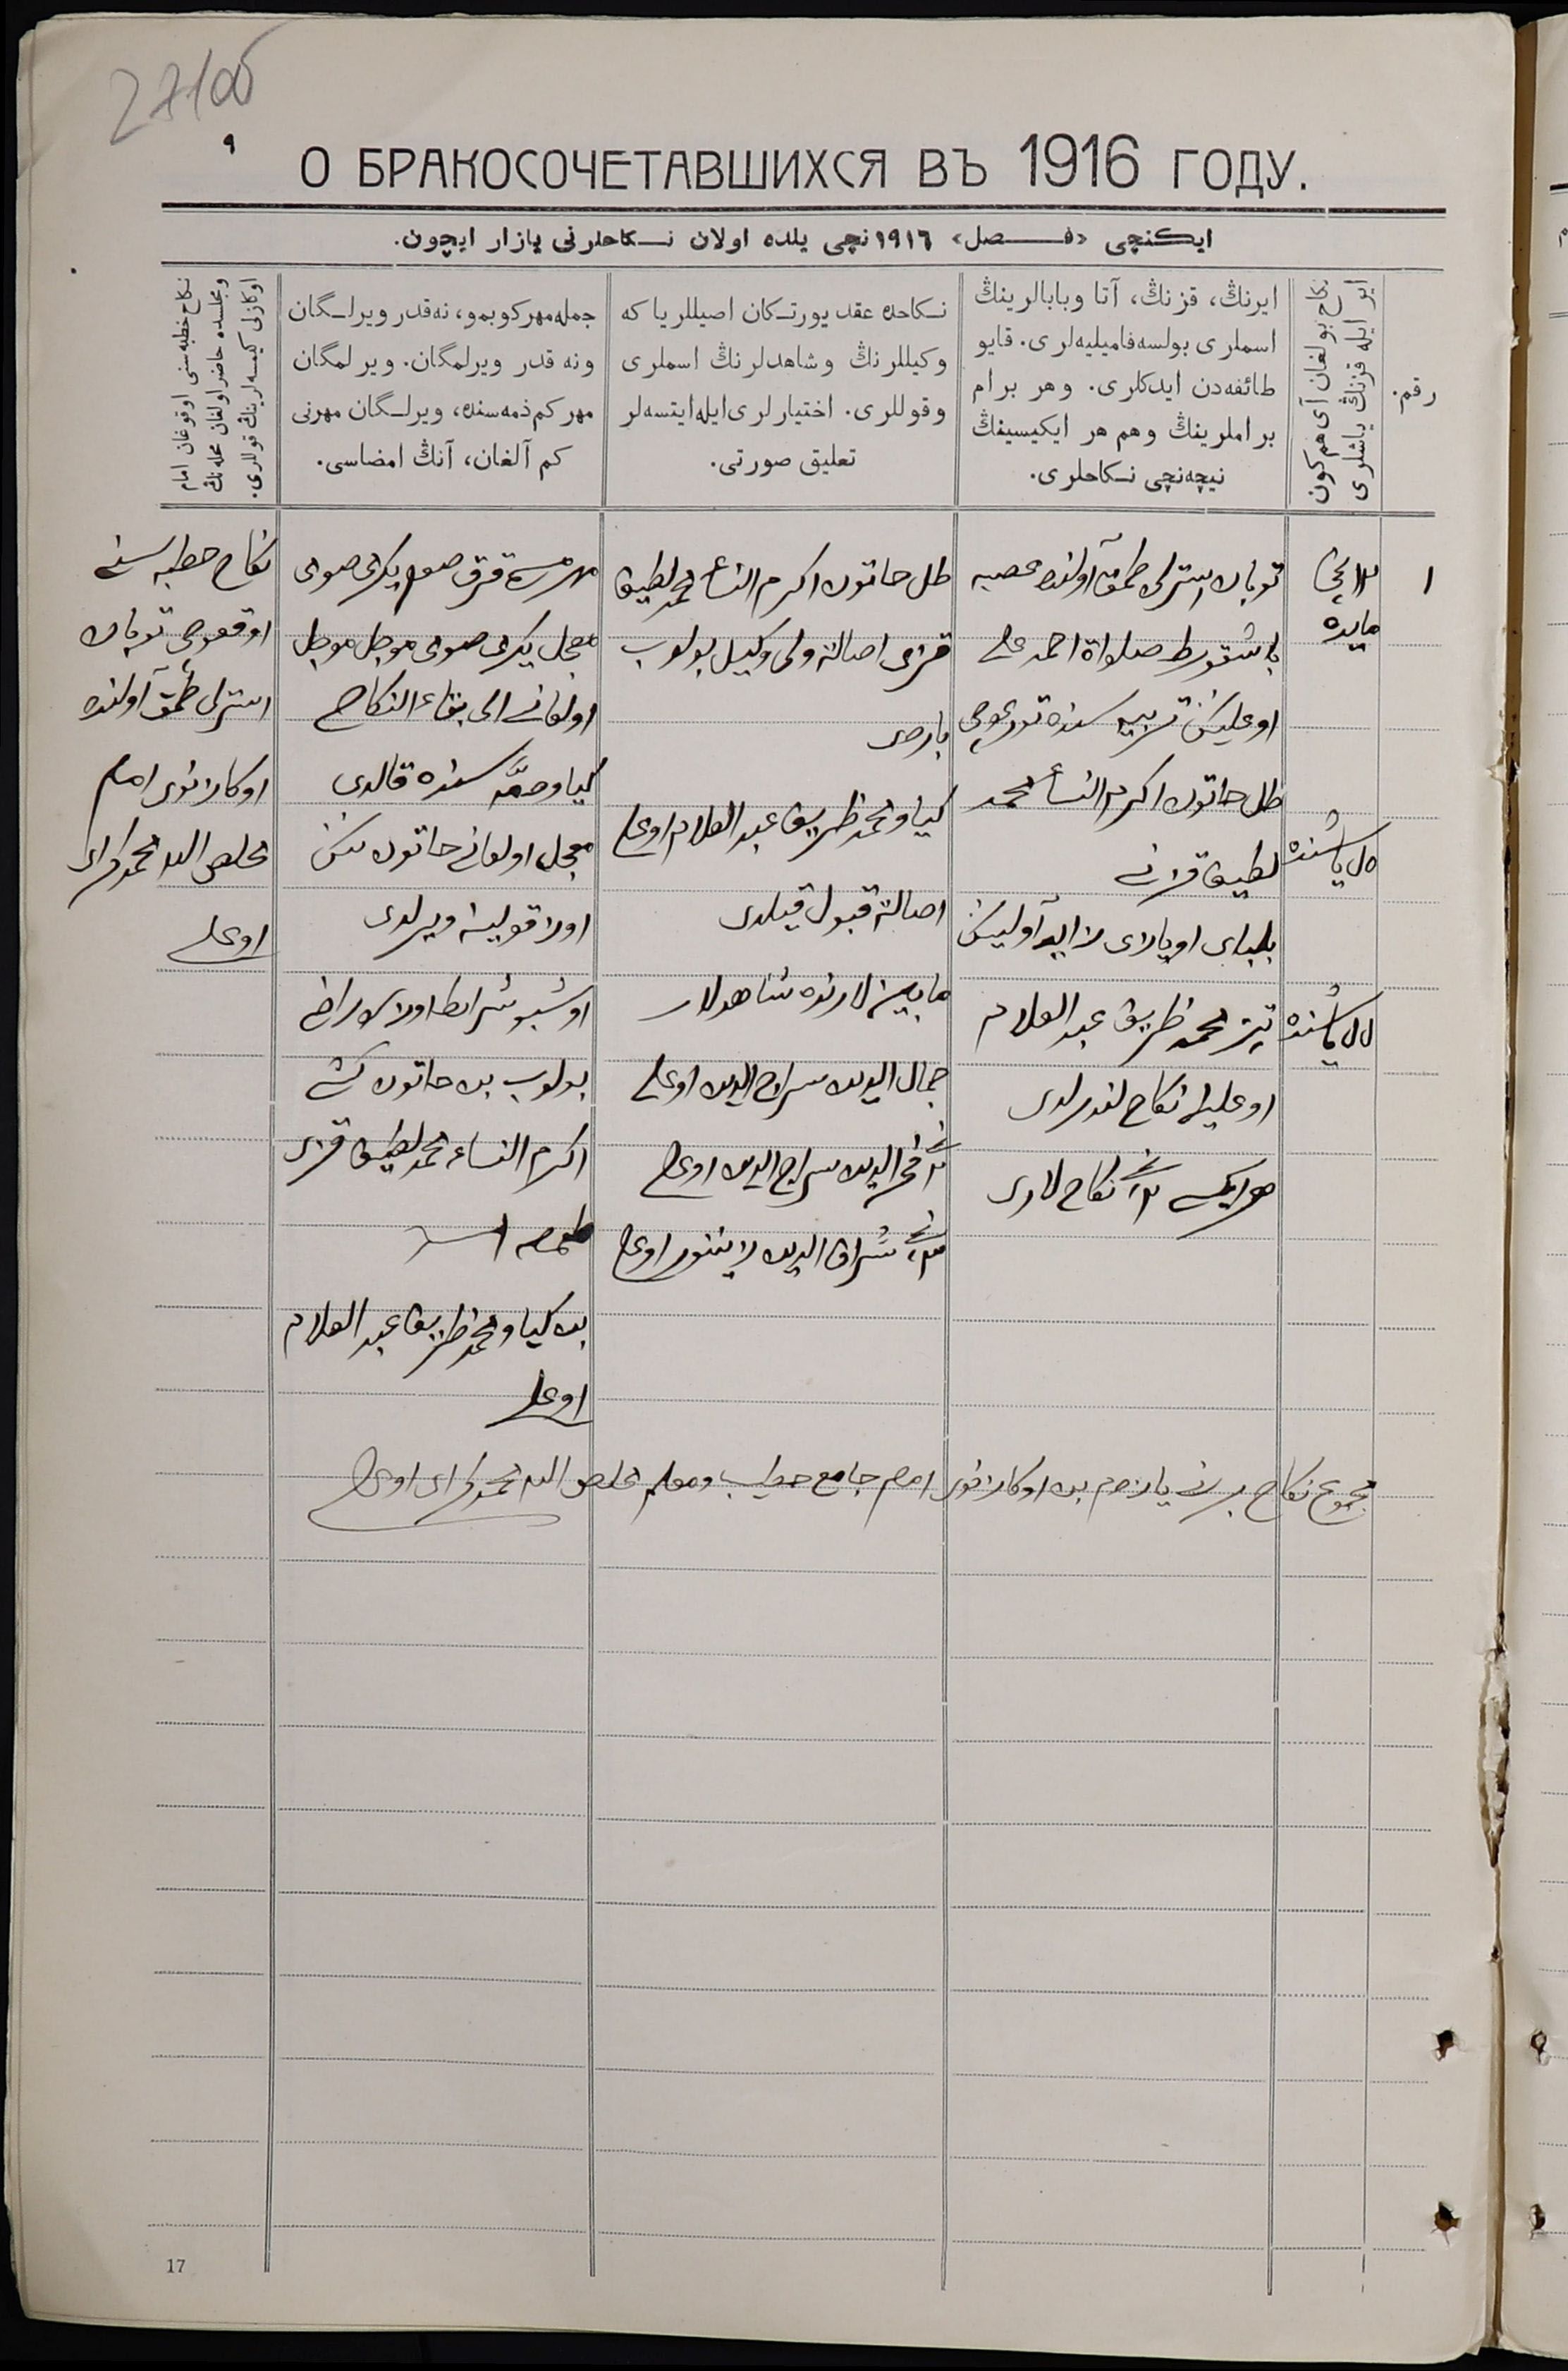 27/об
٩
О БРАКОСОЧЕТАВШИХСЯ ВЪ 1916 ГОДУ.
ایكنچی «فـصل» ١٩١٦ نچی یلده اولان نـكاحلرنی یازار ایچون.
رقم.
نكاح بولغان آی هم كون
ایر ایله قزنڭ یاشلری
ایرنڭ، قزنڭ، آتا وبابالرینڭ
اسملری بولسه فامیلیه‌لری. قایو
طائفه‌دن ایدكلری. وهر برام
براملرینڭ وهم هر ایكیسینڭ
نیچه‌نچی نـكاحلری.
نـكاحده عقد یورتـكان اصیللریا كه
وكیللرنڭ وشاهدلرنڭ اسملری
وقوللری. اختیارلری ایله ایتسه‌لر
تعلیق صورتی.
جمله مهر كوبمو، نه‌قدر ویرلـگان
ونه قدر ویرلمگان. ویرلمگان
مهر كم ذمه‌سنده، ویرلـگان مهرنی
كم آلغان، آنڭ امضاسی.
نكاح خطبه‌سنی اوقوغان امام
ومجلسده حاضر اولغان محله‌نڭ
اوكازلی كیمسه‌لرینڭ قوللری.
١
مایده
توبان استرلی طمق آولنده
باشقورط صلواة احمد علی
اوغلینڭ تربیه سنده تورغوچی
طل خاتون اكرم النساء محمد
لطیف قزنی
یاشنده
آولینڭ
محمد ظریف عبد العلام
یاشنده
اوغلینه نكاح لندرلدی
هر ایكسی ٢نچی نكاح لاری
طل خاتون اكرم النساء محمد لطیف
قزی اصالة ولی وكیل بولوب
باردی
كیاو محمد ظریف عبد العلام اوغلی
اصالة قبول قیلدی
مابین لارنده شاهدلار
جمال الدین سراج الدین اوغلی
٢نچی فخر الدین سراج الدین اوغلی
٣نچی شراف الدین اوغلی
قرق صوم یكرمی صومی
معجل یكرمی صومی موجل موجل
اولغانی الی بقاء النكاح
كیاو ذمّه سنده قالدی
معجل اولغانی خاتون ننڭ
اوز قولینه ویرلدی
اوشبو شرائطا اوزره راضی
بولوب بن خاتون كشی
اكرم النساء محمد لطیف قزی
بن كیاو محمد ظریف عبد العلام
اوغلی
نكاح خطبه سنی
اوقوغوچی توبان
استرلی طمق آولنده
اوكازنوی امام
مخلص الله محمد كرای
اوغلی
مجموع نكاح برنی یازدم بن اوكازنوی امام جامع خطیب ومعلم مخلص الله محمد كرای اوغلی
17